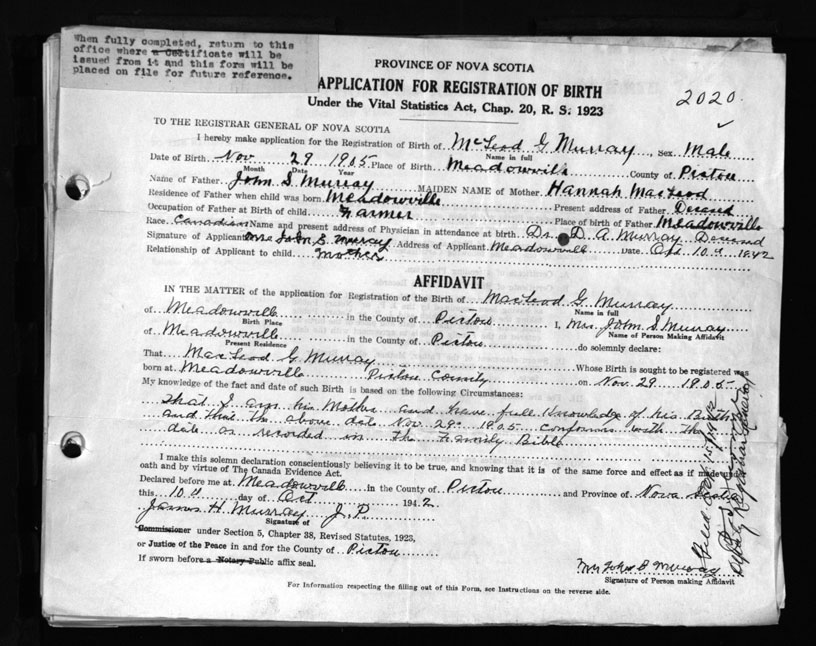 When fully completed, return to this
office where a Certificate will be
issued from it and this form will be
placed on file for future reference.
PROVINCE OF NOVA SCOTIA
APPLICATION FOR REGISTRATION OF BIRTH
Under the Vital Statistics Act, Chap. 20, R. S. 1923
2020
TO THE REGISTRAR GENERAL OF NOVA SCOTIA
I hereby make application for the Registration of Birth of McLeod G Murray, Sex Male
Name in full
Date of Birth Nov 29 1905 Place of Birth Meadowville County of Pictou
Month Date Year
Name of Father John S. Murray MAIDEN NAME of Mother Hannah MacLeod
Residence of Father when child was born Meadowville Present address of Father Deceased
Occupation of Father at Birth of child Farmer Place of birth of Father Meadowville
Race Canadian Name and present address of Physician in attendance at birth Dr. D. A. Murray Deceased
Signature of Applicant Mrs John S. Murray Address of Applicant Meadowville Date Oct 10 1942
Relationship of Applicant to child mother
AFFIDAVIT
IN THE MATTER of the application for Registration of the Birth of MacLeod G. Murray
Name in full
of Meadowville in the County of Pictou I, Mrs John S. Murray
Birth Place Name of Person Making Affidavit
of Meadowville in the County of Pictou do solemnly declare:
Present Residence
That MacLeod G Murray Whose Birth is sought to be registered was
born at Meadowville Pictou County on Nov. 29 1905
My knowledge of the fact and date of such Birth is based on the following Circumstances:
That I am his Mother and have full knowledge of his Birth
and that the above date Nov 29 1905 conforms with the
date as recorded in the Family Bible
I make this solemn declaration conscientiously believing it to be true, and knowing that it is of the same force and effect as if made under
oath and by virtue of The Canada Evidence Act.
Declared before me at Meadowville in the County of Pictou and Province of Nova Scotia
this 10 day of Oct 1942
James H. Murray J.P.
Signature of
Commissioner under Section 5, Chapter 38, Revised Statutes, 1923,
or Justice of the Peace in and for the County of Pictou
If sworn before a Notary Public affix seal.
Mrs John S Murray
Signature of Person making Affidavit
For Information respecting the filling out of this Form, see Instructions on the reverse side.
Deputy Registrar General